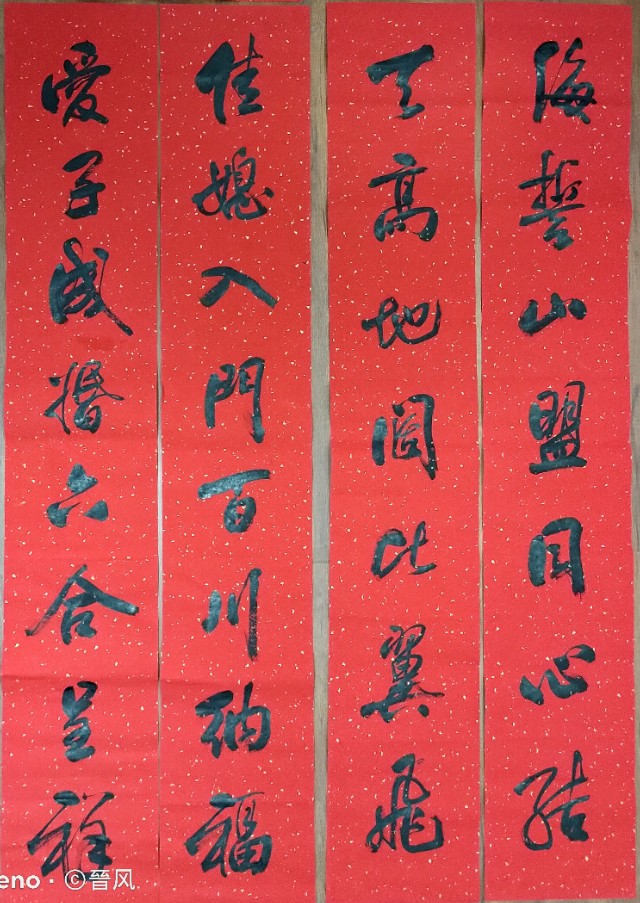 海誓山盟同心結
天高地闊比翼飛
佳媳入門百川納福
愛子成婚六合呈祥
eno · ©晋风